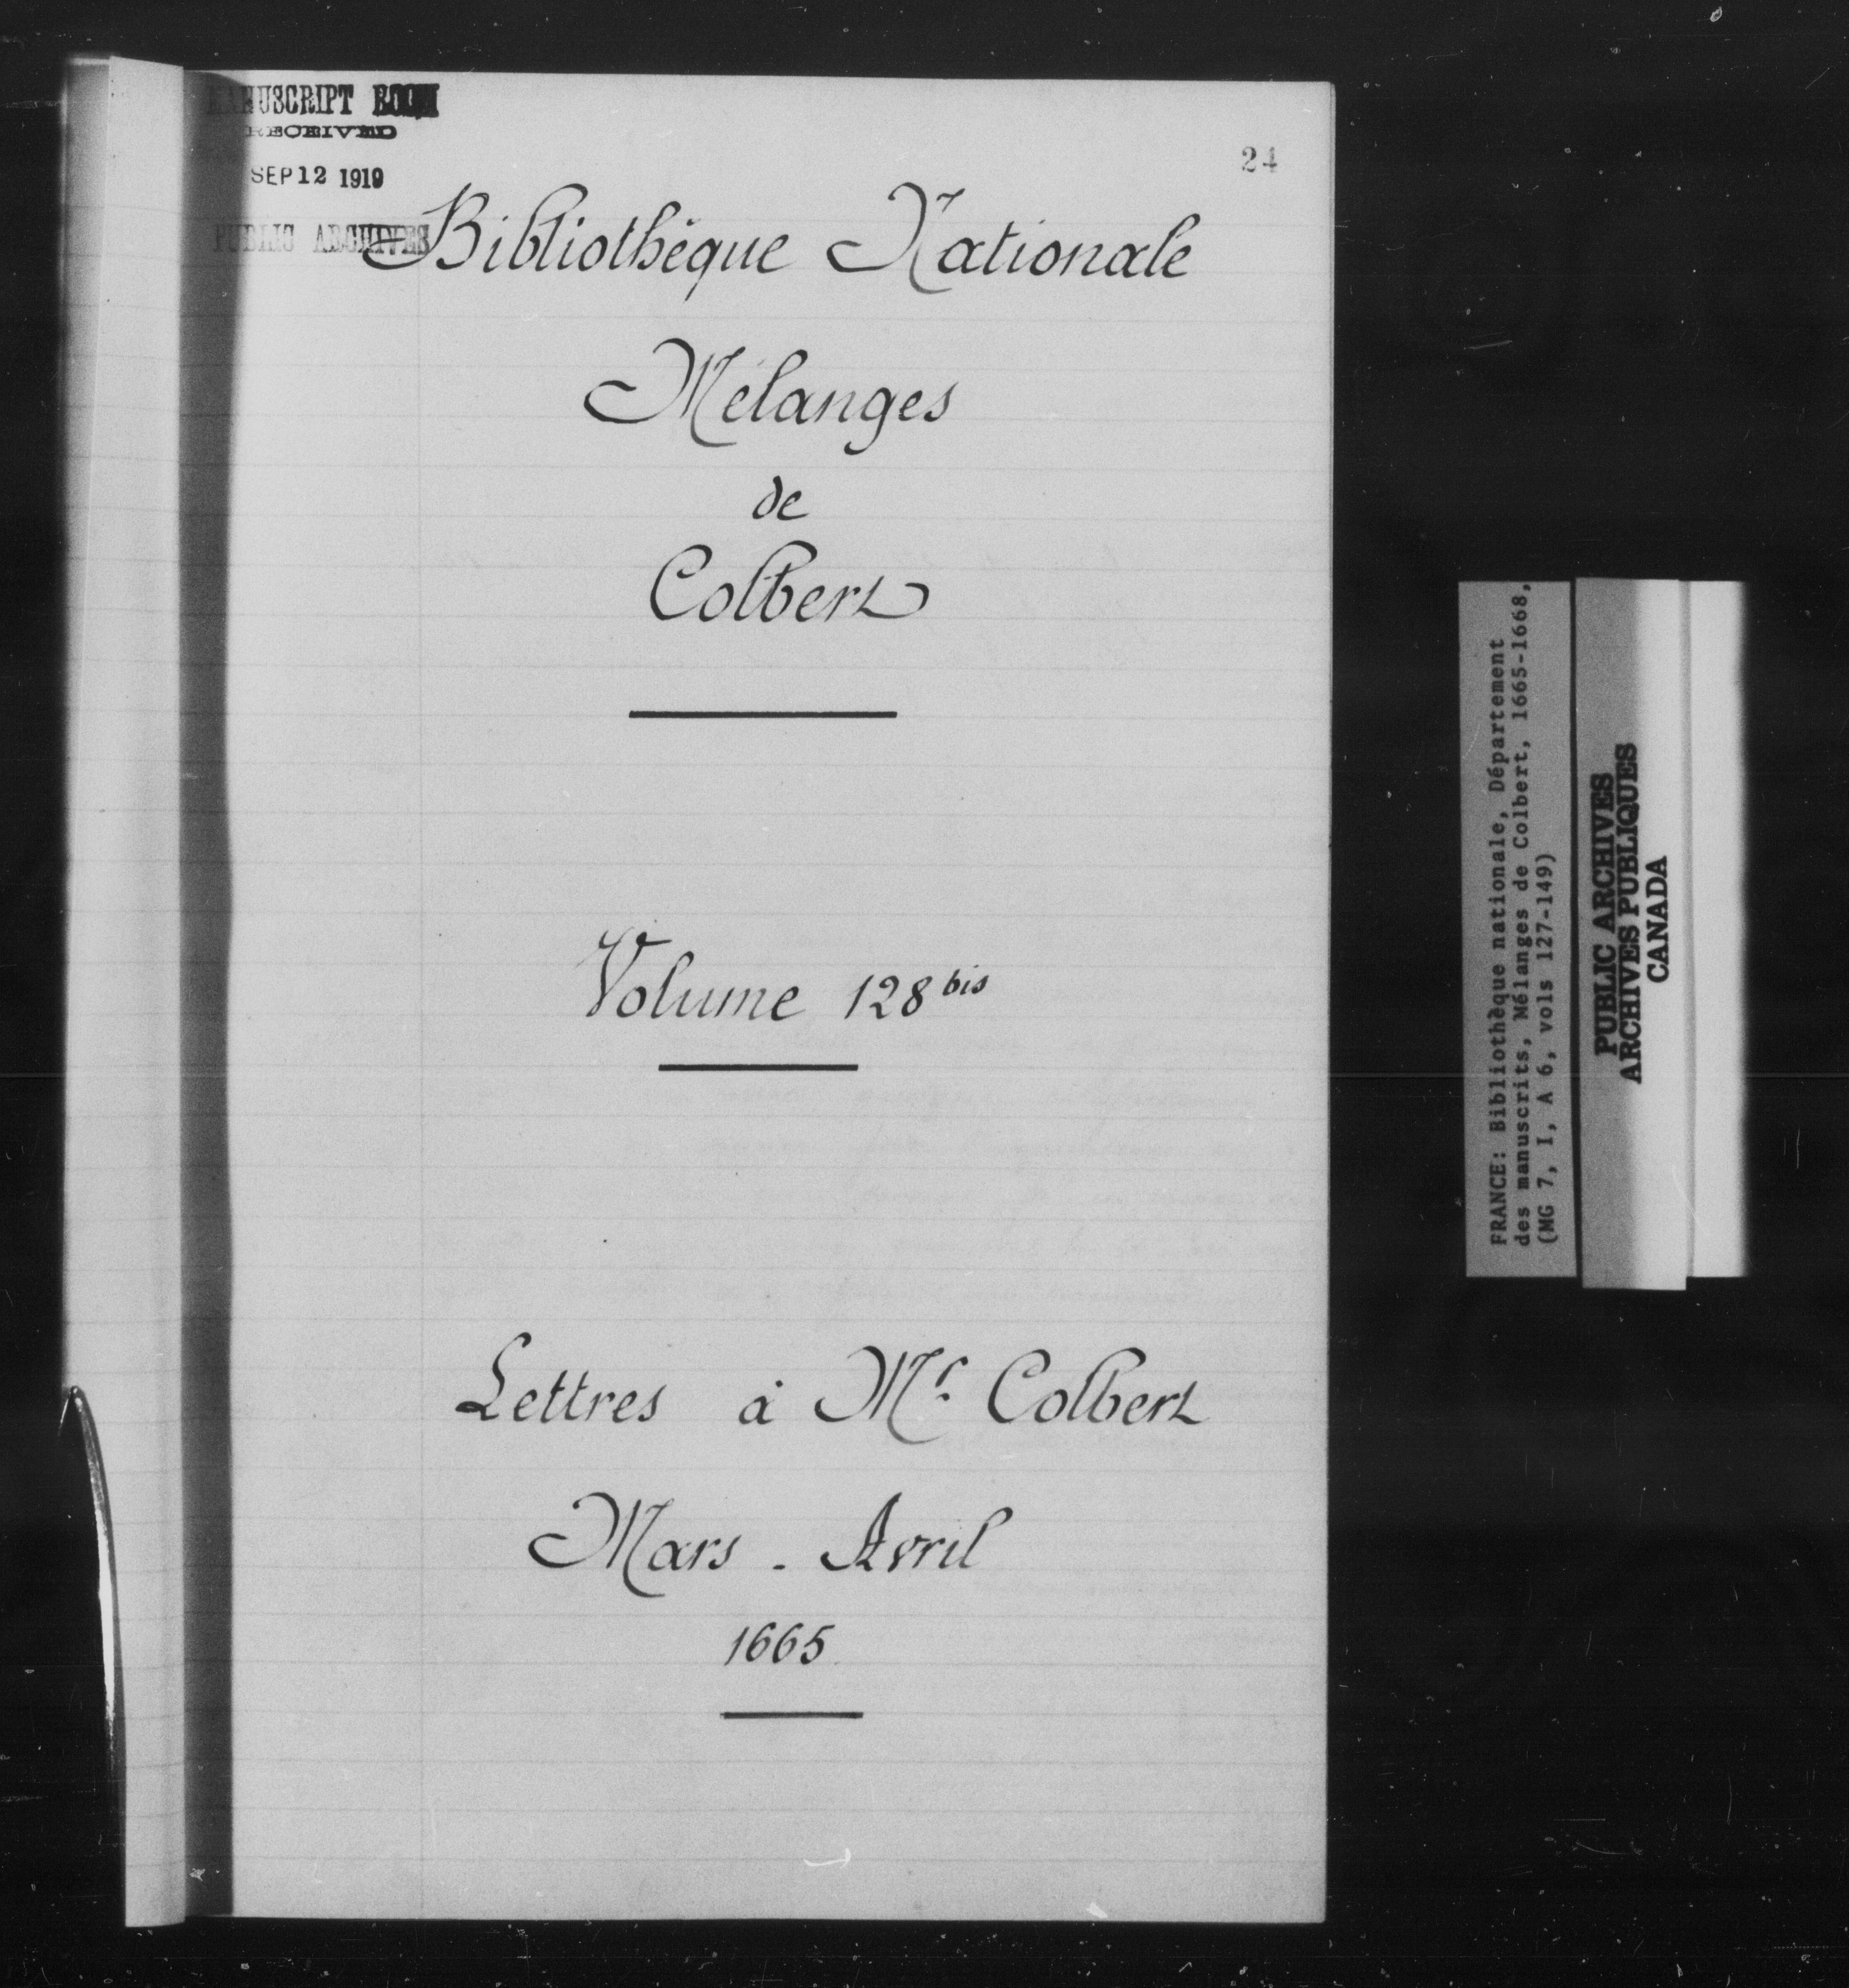 MANUSCRIPT ROOM
RECEIVED
SEP 12 1919
PUBLIC ARCHIVES
24
Bibliothèque Nationale
Mélanges
de
Colbert
Volume 128 bis
Lettres à Mr. Colbert
Mars - Avril
1665
FRANCE: Bibliothèque nationale, Département
des manuscrits, Mélanges de Colbert, 1665-1668,
(MG 7, I, A 6, vols 127-149)
PUBLIC ARCHIVES
ARCHIVES PUBLIQUES
CANADA